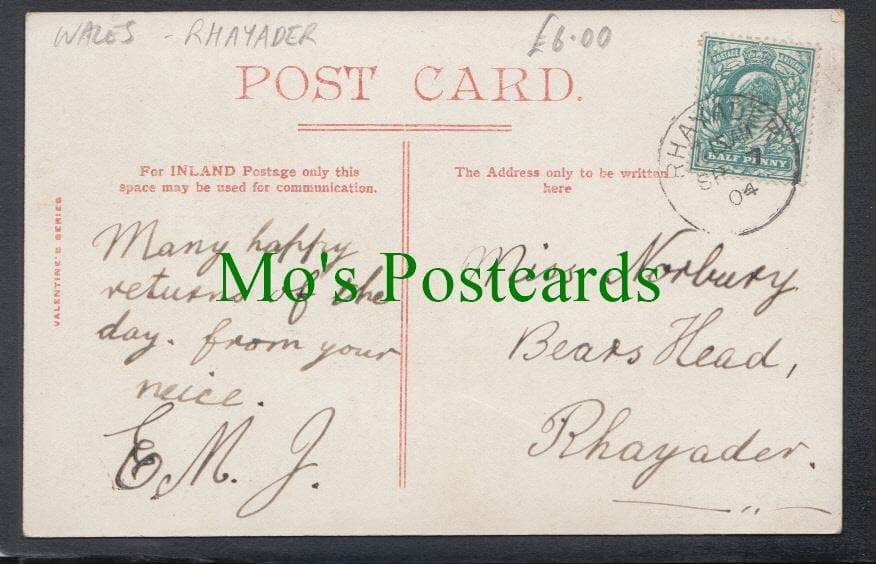 WALES - RHAYADER
£6.00
POST CARD.
POSTAGE & REVENUE
HALF PENNY
RHAYADER
SP 7
04
For INLAND Postage only this
space may be used for communication.
The Address only to be written
here
VALENTINE'S SERIES
Many happy
returns of the
day. from your
neice.
E. M. J.
Miss Norbury
Bears Head,
Rhayader.
Mo's Postcards